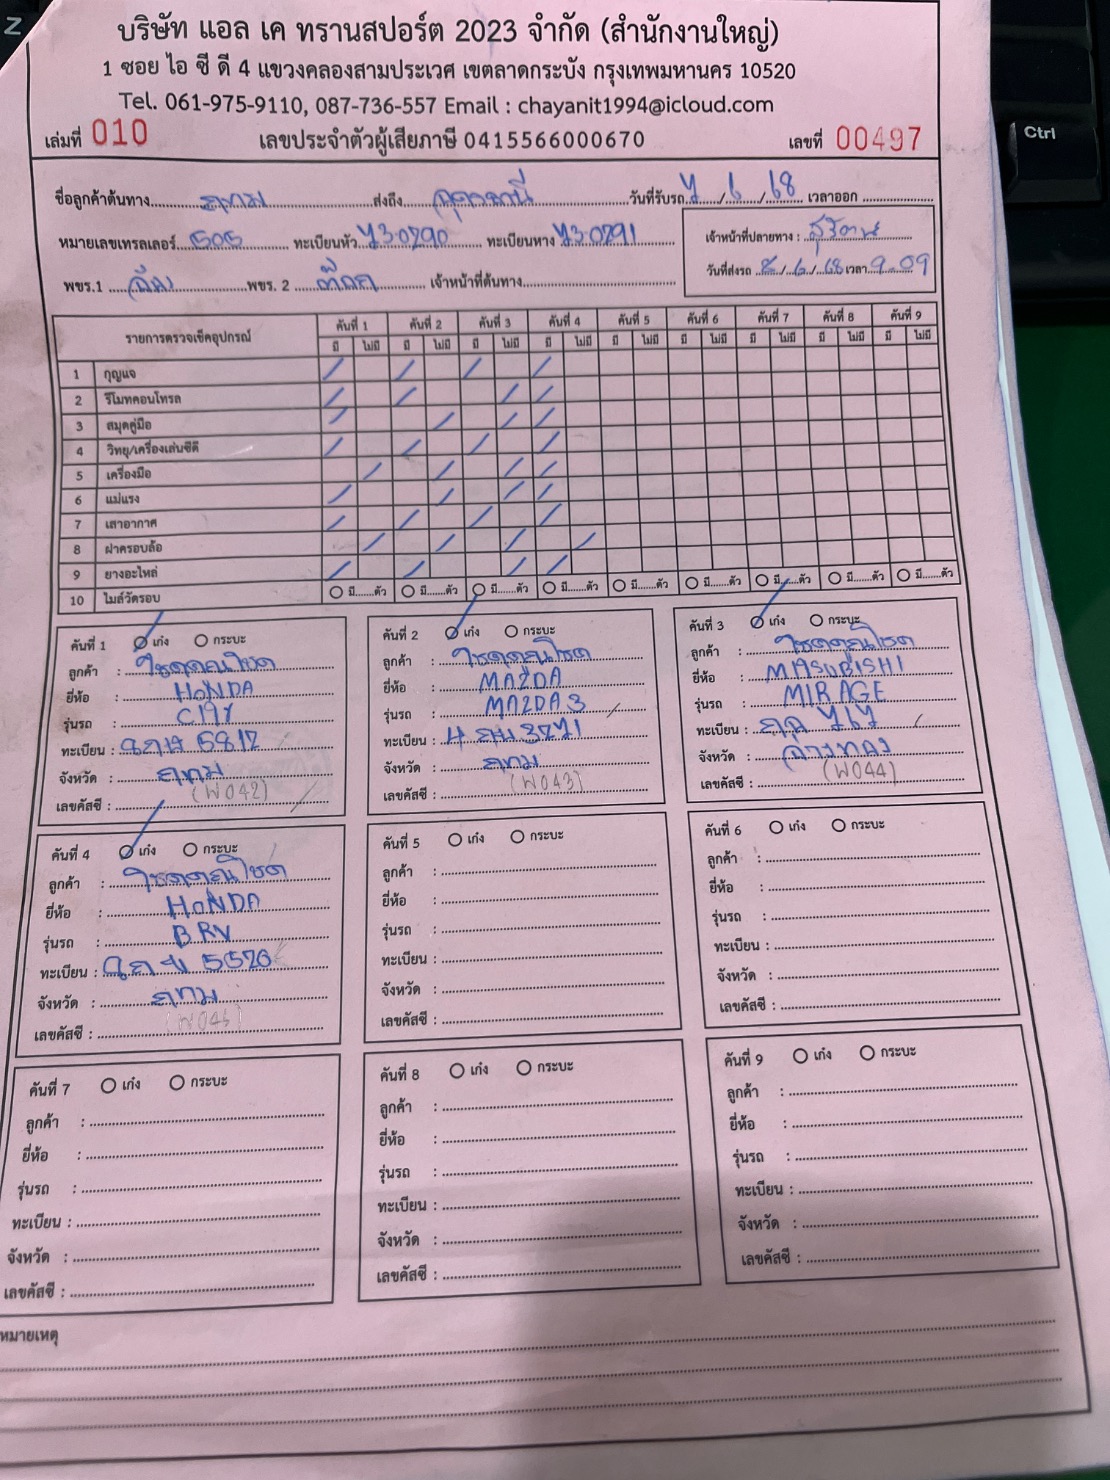 บริษัท แอล เค ทรานสปอร์ต 2023 จำกัด (สำนักงานใหญ่)
1 ซอย ไอ ซี ดี 4 แขวงคลองสามประเวศ เขตลาดกระบัง กรุงเทพมหานคร 10520
Tel. 061-975-9110, 087-736-557 Email : chayanit1994@icloud.com
เล่มที่ 010 เลขประจำตัวผู้เสียภาษี 0415566000670 เลขที่ 00497
ชื่อลูกค้าต้นทาง กทม ส่งถึง อุดรธานี วันที่รับรถ / 6 / 68 เวลาออก
หมายเลขเทรลเลอร์ 505 ทะเบียนหัว 73-0290 ทะเบียนหาง 73-0291
เจ้าหน้าที่ปลายทาง :
วันที่ส่งรถ 8 / 6 / 68 เวลา 9.09
พขร.1 พขร. 2 เจ้าหน้าที่ต้นทาง
รายการตรวจเช็คอุปกรณ์ คันที่ 1 คันที่ 2 คันที่ 3 คันที่ 4 คันที่ 5 คันที่ 6 คันที่ 7 คันที่ 8 คันที่ 9
มี ไม่มี มี ไม่มี มี ไม่มี มี ไม่มี มี ไม่มี มี ไม่มี มี ไม่มี มี ไม่มี มี ไม่มี
1 กุญแจ
2 รีโมทคอนโทรล
3 สมุดคู่มือ
4 วิทยุ/เครื่องเล่นซีดี
5 เครื่องมือ
6 แม่แรง
7 เสาอากาศ
8 ฝาครอบล้อ
9 ยางอะไหล่
10 ไมล์วัดรอบ มี ตัว มี ตัว มี ตัว มี ตัว มี ตัว มี ตัว มี ตัว มี ตัว มี ตัว
คันที่ 1 เก๋ง กระบะ
ลูกค้า :
ยี่ห้อ : HONDA
รุ่นรถ : CITY
ทะเบียน : 5812
จังหวัด : กทม
(W042)
เลขคัสซี :
คันที่ 2 เก๋ง กระบะ
ลูกค้า :
ยี่ห้อ : MAZDA
รุ่นรถ : MAZDA 3
ทะเบียน : 4 3271
จังหวัด : กทม
(W043)
เลขคัสซี :
คันที่ 3 เก๋ง กระบะ
ลูกค้า :
ยี่ห้อ : MITSUBISHI
รุ่นรถ : MIRAGE
ทะเบียน :
จังหวัด : อ่างทอง
(W044)
เลขคัสซี :
คันที่ 4 เก๋ง กระบะ
ลูกค้า :
ยี่ห้อ : HONDA
รุ่นรถ : BRV
ทะเบียน : 5520
จังหวัด : กทม
(W045)
เลขคัสซี :
คันที่ 5 เก๋ง กระบะ
ลูกค้า :
ยี่ห้อ :
รุ่นรถ :
ทะเบียน :
จังหวัด :
เลขคัสซี :
คันที่ 6 เก๋ง กระบะ
ลูกค้า :
ยี่ห้อ :
รุ่นรถ :
ทะเบียน :
จังหวัด :
เลขคัสซี :
คันที่ 7 เก๋ง กระบะ
ลูกค้า :
ยี่ห้อ :
รุ่นรถ :
ทะเบียน :
จังหวัด :
เลขคัสซี :
คันที่ 8 เก๋ง กระบะ
ลูกค้า :
ยี่ห้อ :
รุ่นรถ :
ทะเบียน :
จังหวัด :
เลขคัสซี :
คันที่ 9 เก๋ง กระบะ
ลูกค้า :
ยี่ห้อ :
รุ่นรถ :
ทะเบียน :
จังหวัด :
เลขคัสซี :
หมายเหตุ
Ctrl
Z